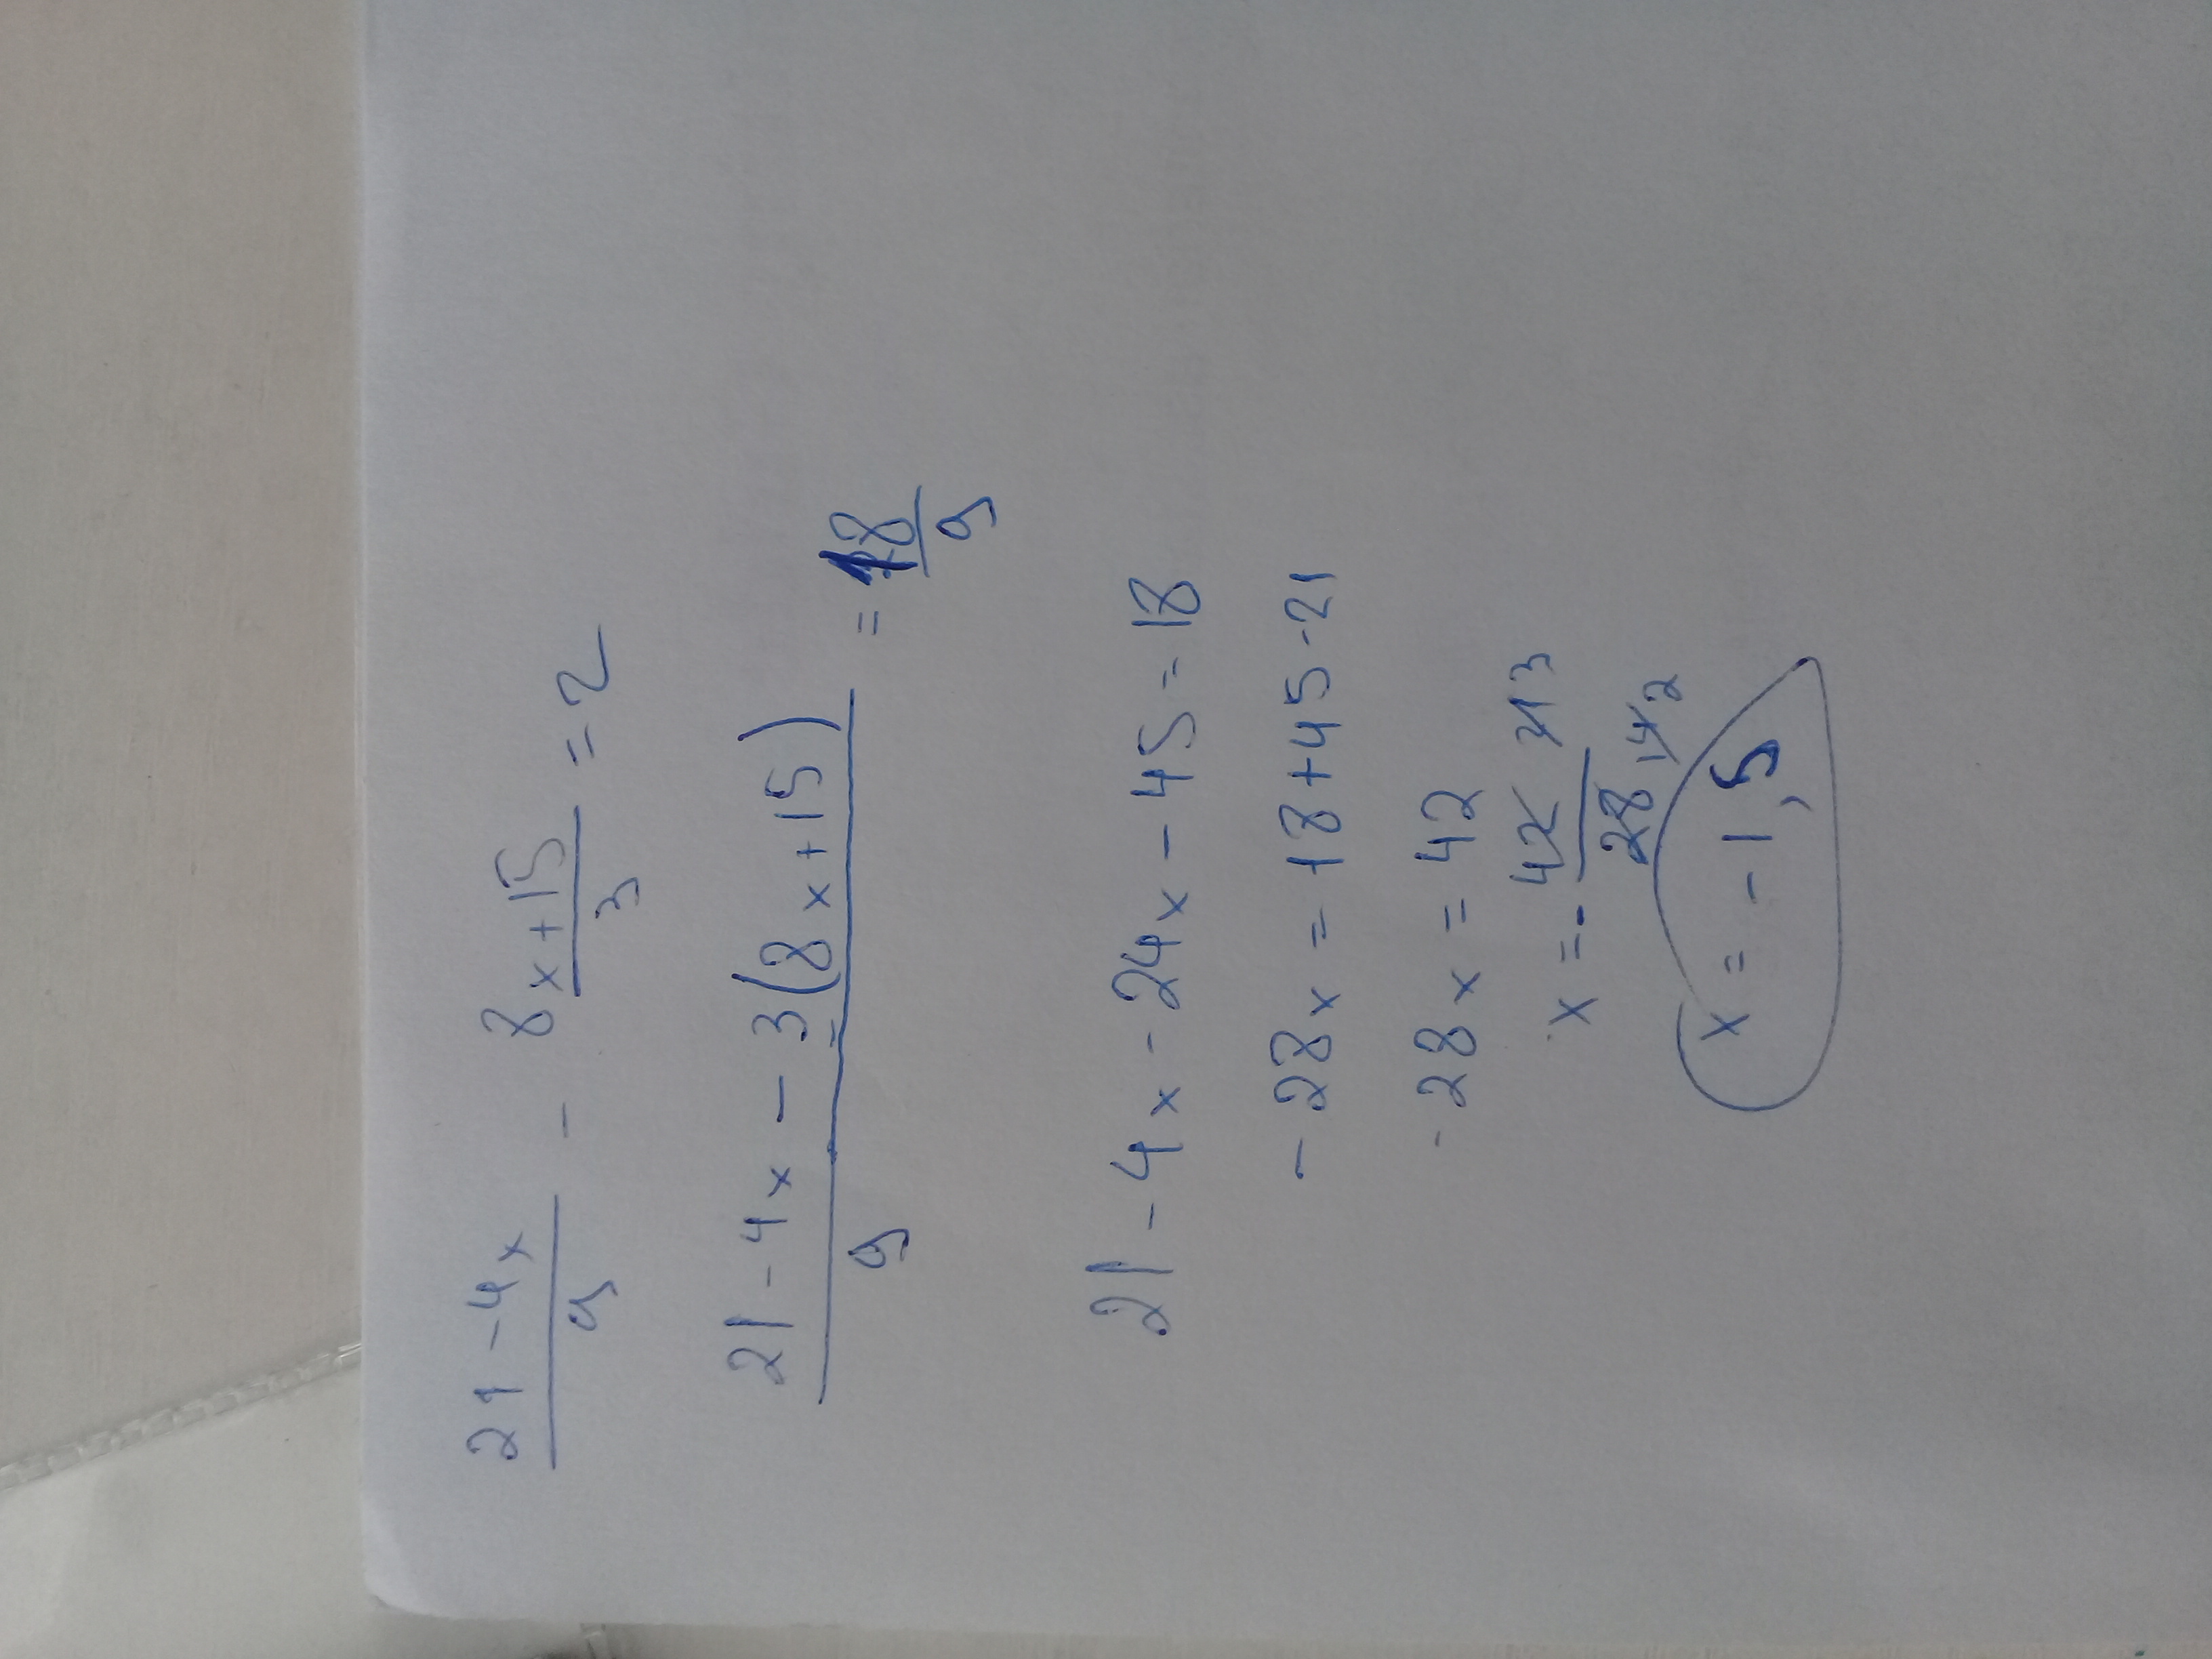 21 - 4x / 9 - 8x + 15 / 3 = 2
21 - 4x - 3(8x + 15) / 9 = 18 / 9
21 - 4x - 24x - 45 = 18
- 28x = 18 + 45 - 21
- 28x = 42
x = - 42 21 3 / 28 14 2
x = - 1,5